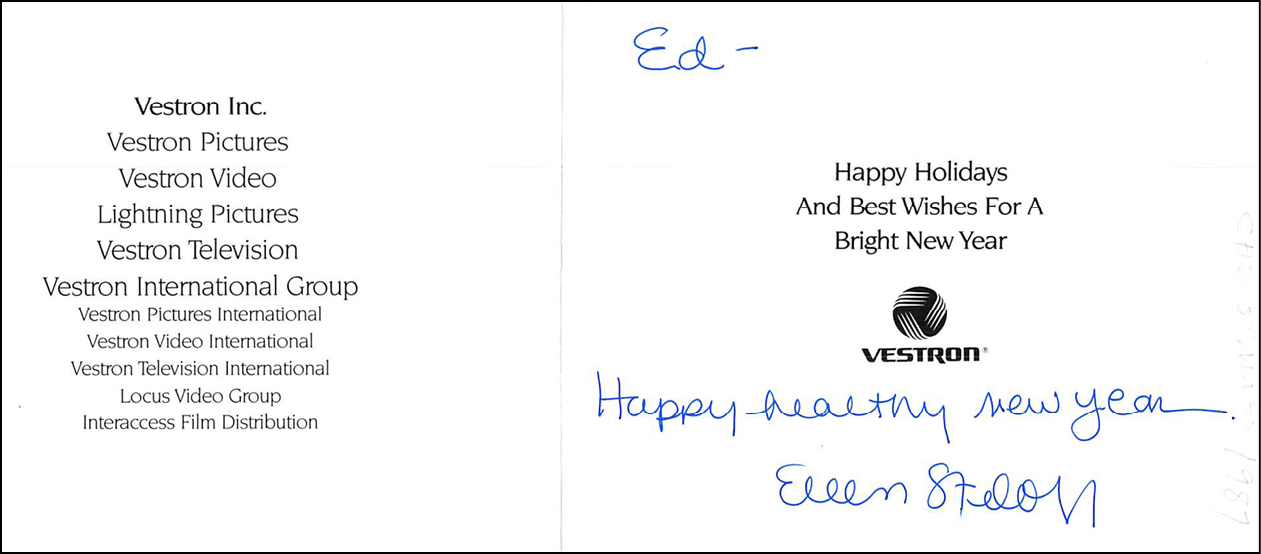 Vestron Inc.
Vestron Pictures
Vestron Video
Lightning Pictures
Vestron Television
Vestron International Group
Vestron Pictures International
Vestron Video International
Vestron Television International
Locus Video Group
Interaccess Film Distribution
Ed -
Happy Holidays
And Best Wishes For A
Bright New Year
VESTRON®
Happy healthy new year.
Ellen
1987